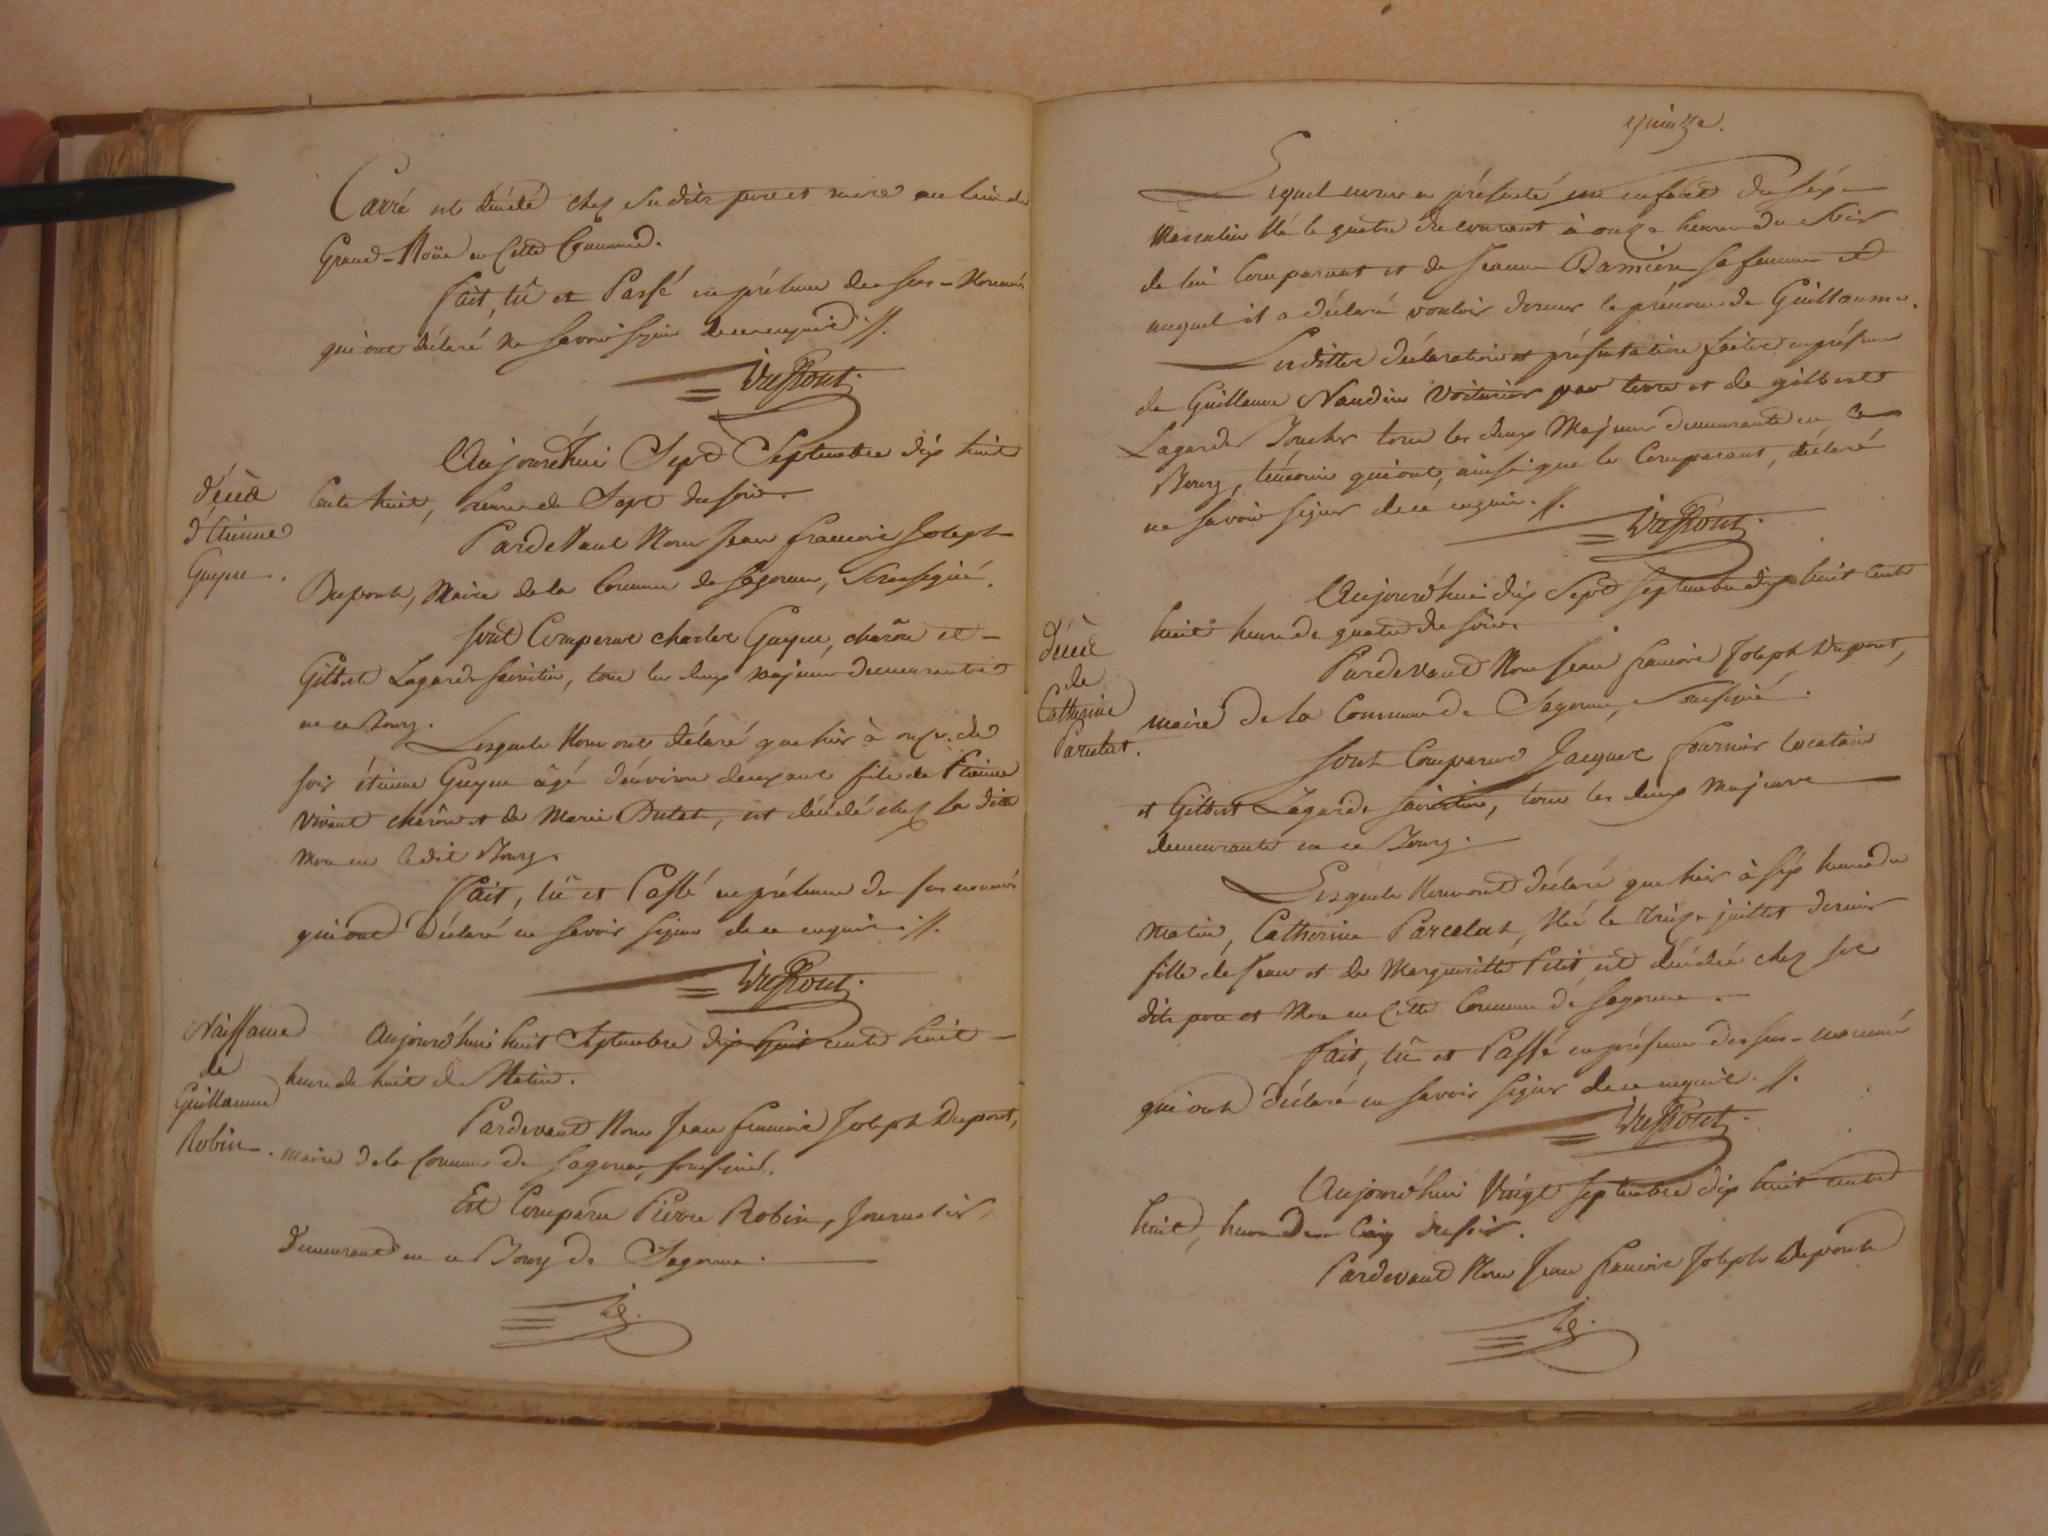 Carré est décédé chez sesdits pere et mere au lieu de
Grand-Noüe en Cette Commune.
fait, lû et Passé en présence des sus-Nommés
qui ont déclaré ne savoir signer de ce enquis.
Dupont.
décès
d'Etienne
Guyeu.
Aujourd'hui Sept Septembre dix huit
Cents huit, heure de Sept du soir.
Pardevant Nous Jean francois Joseph
Dupont, Maire de la Commune de Sagonne, Soussigné.
sont Comparus charles Guyeu, charôn et
Gilbert Lagarde sacristin, tous les deux majeurs demeurants
en ce Bourg.
Lesquels Nous ont déclaré que hier à onze du
soir étienne Guyeu âgé d'énviron deux ans fils de Etienne
vivant charôn et de Marie Dutat, est décédé chez sa dite
Mere en ledit Bourg.
fait, lû et Passé en présence des sus nommés
qui ont déclaré ne savoir signer de ce enquis.
Dupont.
Naissance
de
Guillaume
Robin.
Aujourd'hui huit Septembre dix huit cents huit
heure de huit du Matin.
Pardevant Nous Jean francois Joseph Dupont,
maire de la Commune de Sagonne, soussigné.
Est Comparu Pierre Robin, Journalier,
demeurant en ce Bourg de Sagonne.
quinze.
Lequel nous a présenté un enfant du séxe
Masculin Né le quatre du courant à onze heures du Soir
de lui Comparant et de Jeanne Damien sa femme et
auquel il a déclaré vouloir donner le prénom de Guillaume.
Lesdittes déclaration et présentation faites en présence
de Guillaume Naudin Voiturier par terre et de gilbert
Lagarde tous les deux Majeurs demeurants en Ce
Bourg, témoins qui ont, ainsi que le Comparant, déclaré
ne savoir signer de ce enquis.
Dupont.
décès
de
Catherine
Parcelat.
Aujourd'hui dix Sept Septembre dix huit cents
huit heure de quatre du soir.
Pardevant Nous Jean francois Joseph Dupont,
maire de la Commune de Sagonne, Soussigné.
sont Comparus Jacques fournier locataire
et Gilbert Lagarde sacristin, tous les deux Majeurs
demeurants en ce Bourg.
Lesquels Nous ont déclaré que hier à séx heures du
matin, Catherine Parcelat, Née le treize juillet dernier
fille de Jean et de Margueritte Petit est décédée chez ses
dits pere et Mere en Cette Commune de Sagonne.
fait, lû et Passé en présence des sus-nommés
qui ont déclaré ne savoir signer de ce enquis.
Dupont.
Aujourd'hui Vingt septembre dix huit cents
huit, heure de Cinq du soir.
Pardevant Nous Jean francois Joseph Dupont